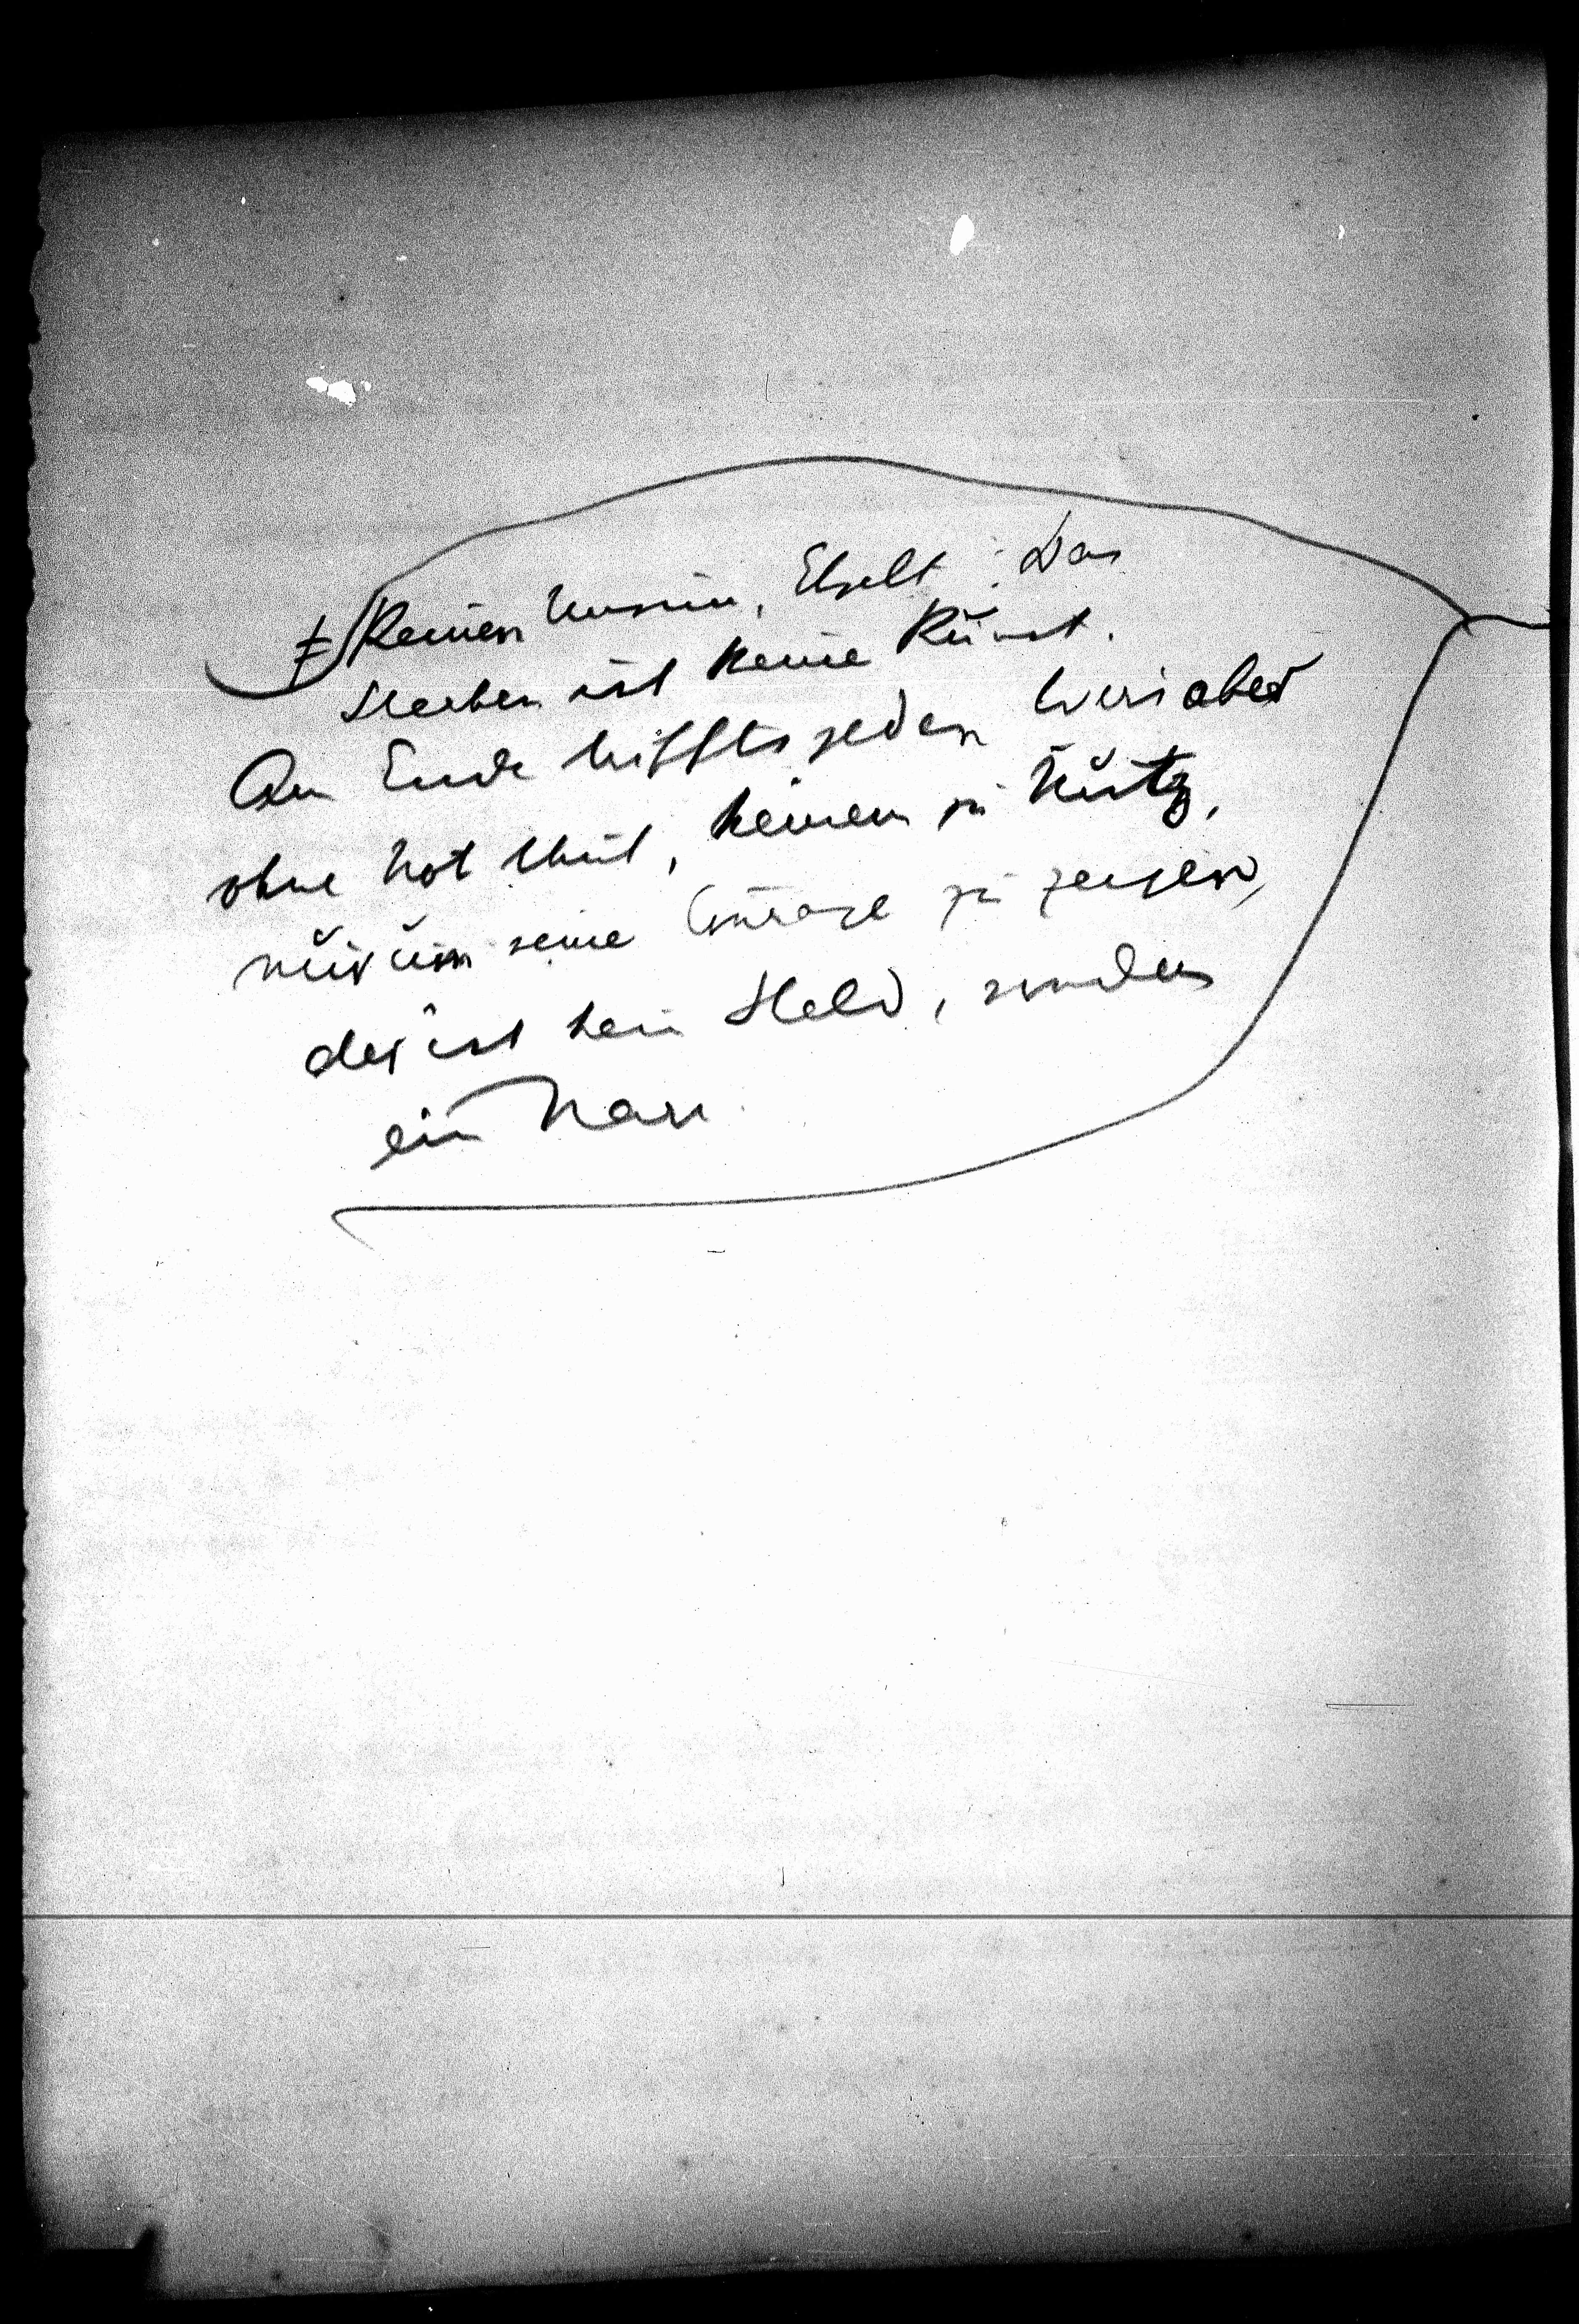 Keinen Unsinn, Elselt! Das
Sterben ist keine Kunst.
Am Ende triffts jeden Wer aber
ohne Not thut, keinem zu Nutz,
nur um seine Courage zu zeigen,
der ist kein Held, sondern
ein Narr.